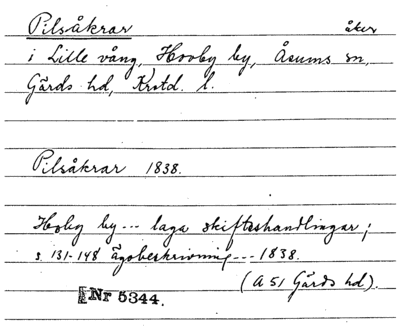 Pilsåkrar åker
i Lille vång, Hovby by, Åsums sn,
Gärds hd, Krstd. l.
Pilsåkrar 1838.
Hoby by --- laga skifteshandlingar;
s. 131-148 Ägobeskrivning --- 1838.
(A 51 Gärds hd).
Nr 5344.